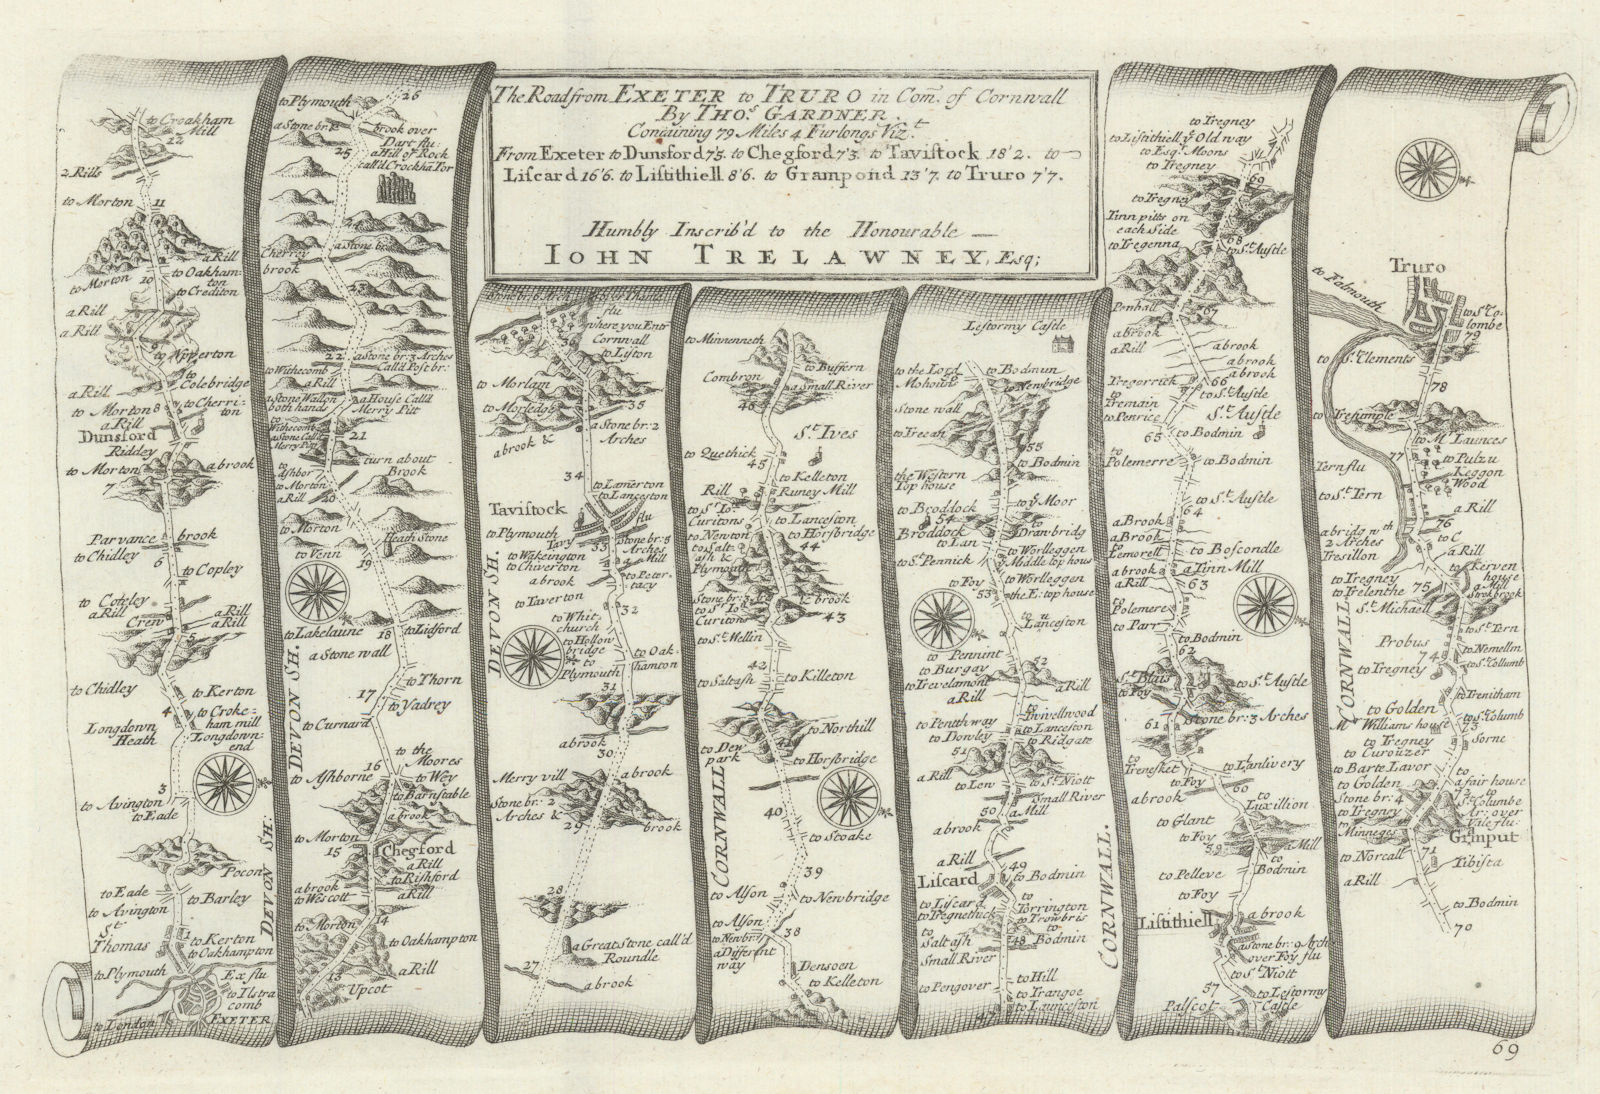 The Road from EXETER to TRURO in Com. of Cornwall
By THOs. GARDNER.
Containing 79 Miles 4 Furlongs Vizt.
From Exeter to Dunsford 7'5. to Chegford 7'3. to Tavistock 18'2. to
Liscard 16'6. to Listithiell 8'6. to Grampond 13'7. to Truro 7'7.
Humbly Inscrib'd to the Honourable
IOHN TRELAWNEY, Esq;
to Croakham
Mill
12
2 Rills
to Morton
11
a Rill
to Oakham-
ton
to Morton
10
to Crediton
a Rill
a Rill
9
to Upperton
to
Colebridge
a Rill
to Morton 8
to Cherri-
ton
a Rill
Dunsford
Riddey
to Morton
a brook
7
Parvance
brook
to Chidley
6
to Copley
to Coteley
a Rill
a Rill
Crew
a Rill
5
to Chidley
to Kerton
4
to Croke-
ham mill
Longdown
Heath
Longdown-
end
3
to Avington
to Eade
Pocon
to Eade
to Barley
to Avington
St.
Thomas
1
to Kerton
to Oakhampton
to Plymouth
Ex flu
to Ilstra
comb
to London
EXETER
DEVON SH.
to Plymouth
26
a Stone br:
brook over
Dart flu:
25
a Hill of Rock
call'd Crockha Tor
24
a Stone br:
Cherrey
brook
23
22
a Stone br: 3 Arches
Call'd Post br:
to Withecomb
a Rill
a Stone Wall on
both hands
a House Call'd
Merry Pitt
to
Withecomb
a Stone Call'd
Merry Pitt
21
to
Ashbor
turn about
Brook
to Morton
a Rill
20
to Morton
Heath Stone
to Venn
19
to Lakelaune
18
to Lidford
a Stone wall
17
to Thorn
to Yadrey
to Curnard
to the
Moores
16
to Ashborne
to Wey
to Barnstable
a brook
to Morton
15
Chegford
a Rill
to Rishford
a brook
a Rill
to Wescott
14
to Morton
to Oakhampton
a Rill
13
Upcot
DEVON SH.
Stone br: 6 Arch
over Thams
flu
where you Entr
Cornwall
36
to Lifton
to Morlam
to Morledge
35
a brook &
a Stone br: 2
Arches
34
to Lamerton
to Lanceston
Tavistock
flu
to Plymouth
Tavy
Stone br: 8
Arches
33
to Wakington
a Mill
to Chiverton
a brook
to Peter-
tacy
to Taverton
32
to Whit-
church
to Hollow
bridge
to
Plymouth
to Oak-
hamton
31
a brook
30
Merry vill
a brook
Stone br: 2
Arches &
29
brook
28
a Great Stone call'd
Roundle
27
a brook
CORNWALL
to Minnenneth
to Buffern
Combron
a Small River
46
St. Ives
to Quethick
45
to Kelleton
Rill
Runey Mill
to St. Io:
Curitons
to Lanceston
to Newton
to Horsbridge
to Salt-
ash
44
Plymouth
Stone br: 3
a brook
to St. Io:
Curitons
43
to St. Mellin
42
to Saltash
to Killeton
to Northill
41
to Dew
park
to Horsbridge
40
to Stoake
39
to Alson
to Newbridge
to Alson
38
to Newbr:
a Different
way
Densoen
to Kelleton
Lestormy Castle
to the Lord
Mohouns
to Bodmun
to Newbridge
Stone wall
to Trecan
55
to Bodmin
the Western
Top house
to ye Moor
to Broddock
54
Broddock
to
Dranbridg
to Lan
to Worlleggen
to St. Pennick
Middle top hous
to Foy
to Worlleggen
53
the E: top house
to
Lanceston
to Pennint
52
to Burgay
to Trevelmont
a Rill
a Rill
to
Twivellwood
to Pentthway
to Lanceston
to Dowley
to Ridgate
51
a Rill
to St. Niott
to Low
Small River
50
a Mill
a brook
a Rill
49
Liscard
to Bodmin
to Lyscard
to
Torrington
to Tregnethick
to Trowbris
to
Saltash
48
to
Bodmin
Small River
to Hill
to Pengover
to Trangoe
to Launceston
CORNWALL.
to Tregney
to Listithiell ye Old way
to Esqr. Moons
to Tregney
69
to Tregney
Tinn pitts on
each Side
68
to Tregenna
to St. Austle
Penhall
67
a brook
a Rill
a brook
a brook
a brook
Tregorrick
66
to St. Austle
to
Tremain
St. Austle
to Penrice
65
to Bodmin
to Polemerre
to Bodmin
to St. Austle
64
a Brook
a Brook
to
Lemorell
to Boscondle
a brook
a Tinn Mill
a Rill
63
to
Polemere
to Parr
to Bodmin
62
St. Blais
to St. Austle
to Foy
61
Stone br: 3 Arches
to
Trenesket
to Lanlivery
to Foy
60
a brook
to
Luxillion
to Glant
to Foy
59
a Mill
to
Bodmin
to Pelleve
to Foy
Listithiell
a brook
a Stone br: 9 Arch
over Foy flu
to St. Niott
57
to Lestormy
Castle
Palscot
CORNWALL
to Falmouth
Truro
to St. Co-
lombe
79
to St. Clements
78
to Tresimple
to Mr. Launces
77
to Pulzu
Tern flu
Keggon
Wood
to St. Tern
a Rill
76
a bridg wth
2 Arches
to C
Tresillon
a Rill
to Tregney
to
Kerven
house
to Trelenthe
75
a Mill
St. Michaell
Probus
to St. Tern
74
to Nemellm
to Tregney
to St. Collumb
to Trenitham
to Golden
Mr. Williams house
to St. Columb
73
to Tregney
Sorne
to Curouzer
to Barte Lavor
to
a fair house
to Golden
72
to
St. Columbe
Stone br: 4
Ar: over
Vale flu
to Tregney
to
Minneges
Gramput
71
to Norcall
Tibista
a Rill
to Bodmin
70
69